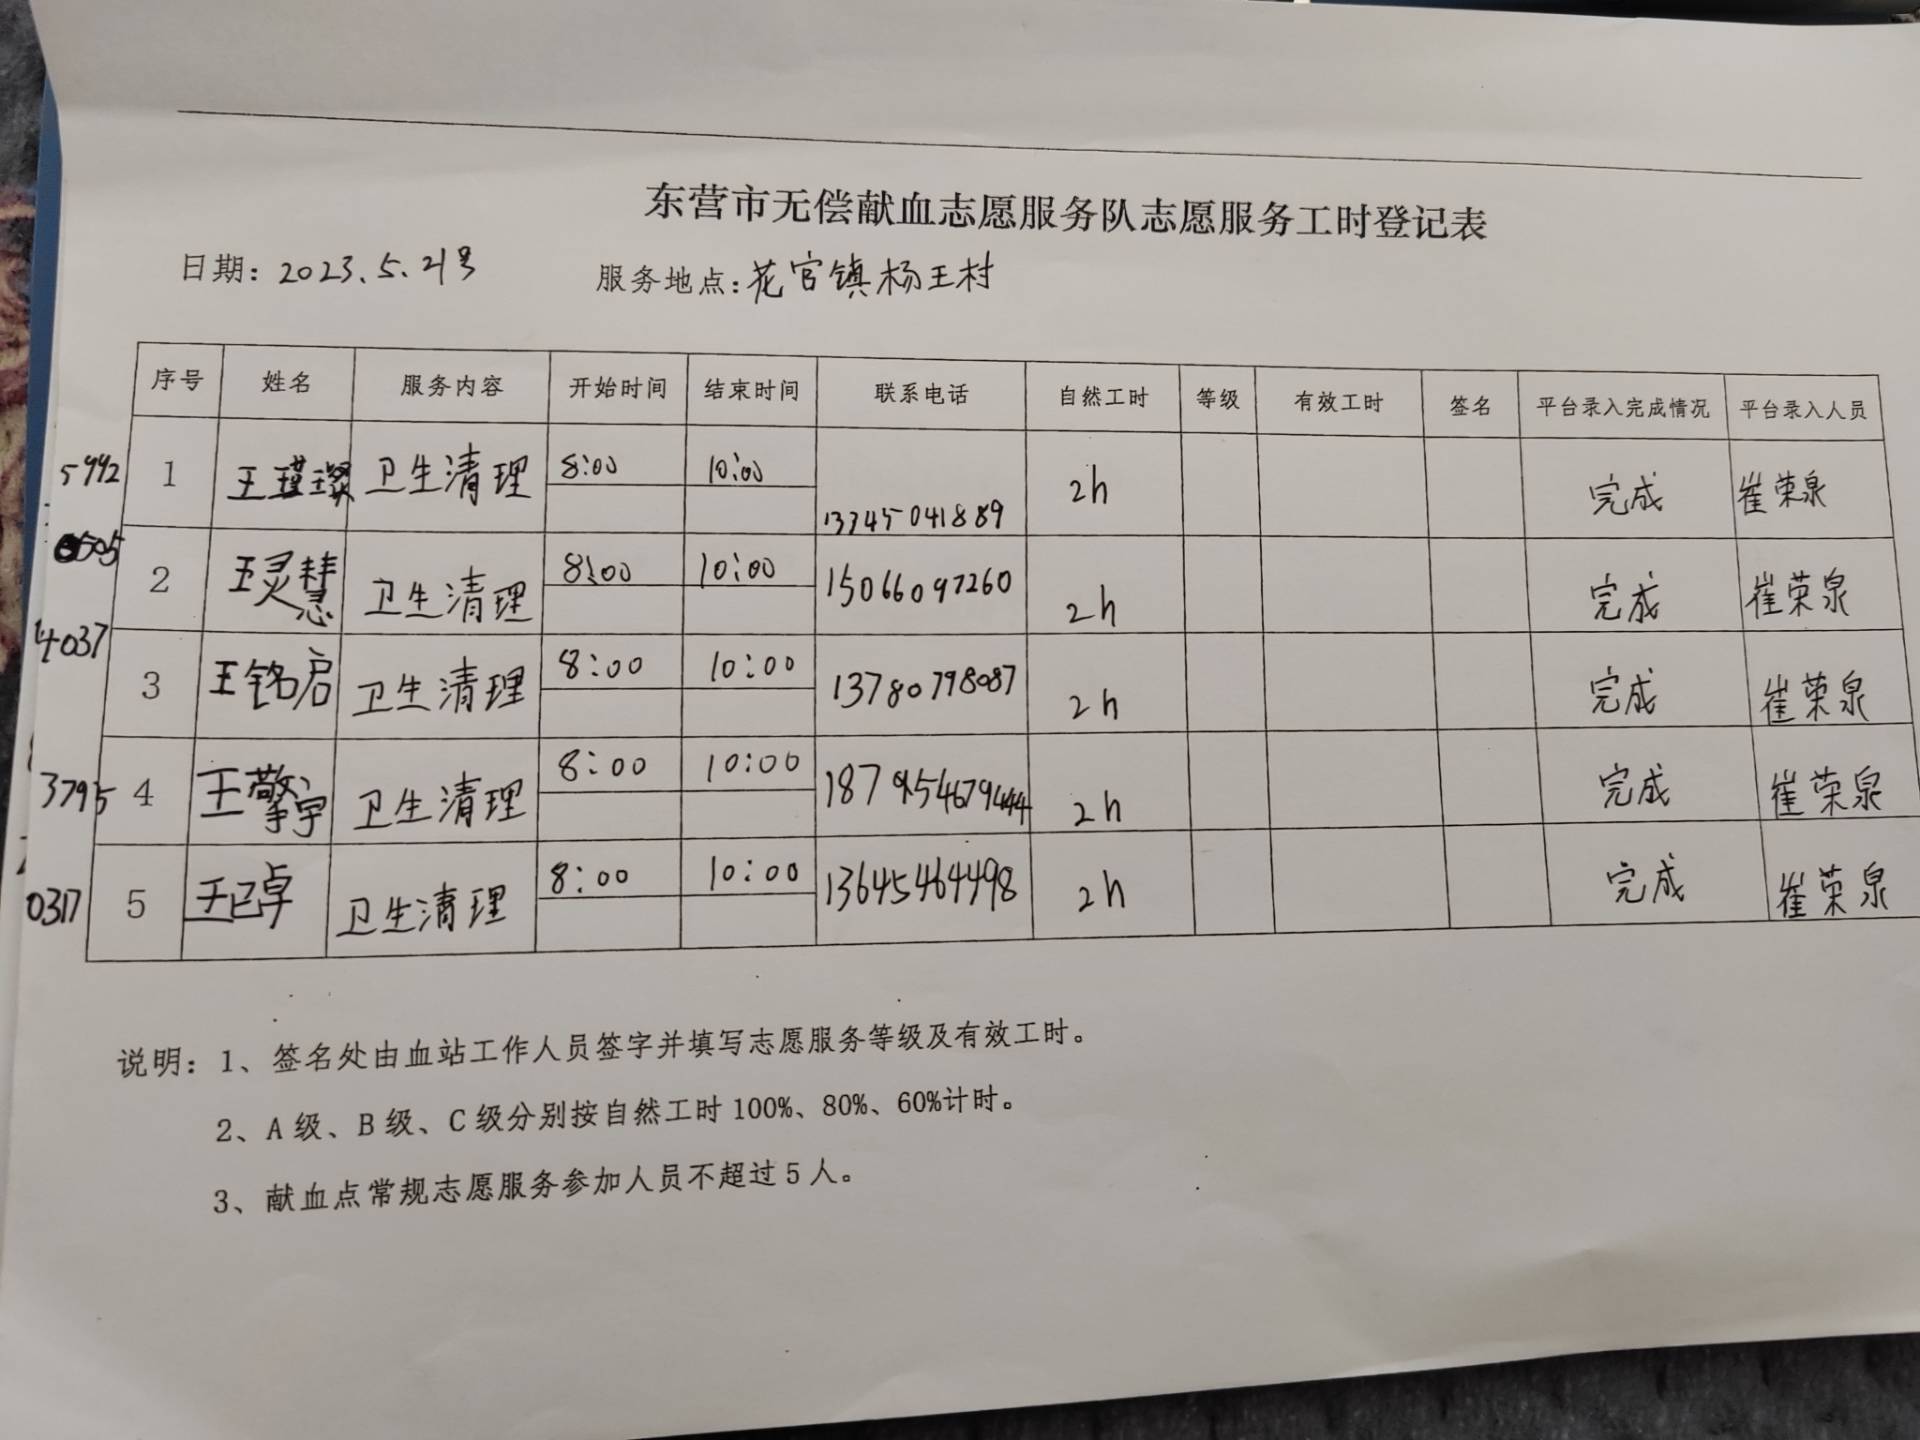 东营市无偿献血志愿服务队志愿服务工时登记表
日期：2023.5.21号 服务地点：花官镇杨王村
序号 姓名 服务内容 开始时间 结束时间 联系电话 自然工时 等级 有效工时 签名 平台录入完成情况 平台录入人员
5992 1 王瑾璨 卫生清理 8:00 10:00 13345041889 2h 完成 崔荣泉
0505 2 王灵慧 卫生清理 8:00 10:00 15066097260 2h 完成 崔荣泉
4037 3 王铭启 卫生清理 8:00 10:00 13780798087 2h 完成 崔荣泉
3795 4 王擎宇 卫生清理 8:00 10:00 2h 完成 崔荣泉
0317 5 王已卓 卫生清理 8:00 10:00 13645464498 2h 完成 崔荣泉
说明：1、签名处由血站工作人员签字并填写志愿服务等级及有效工时。
2、A级、B级、C级分别按自然工时100%、80%、60%计时。
3、献血点常规志愿服务参加人员不超过5人。